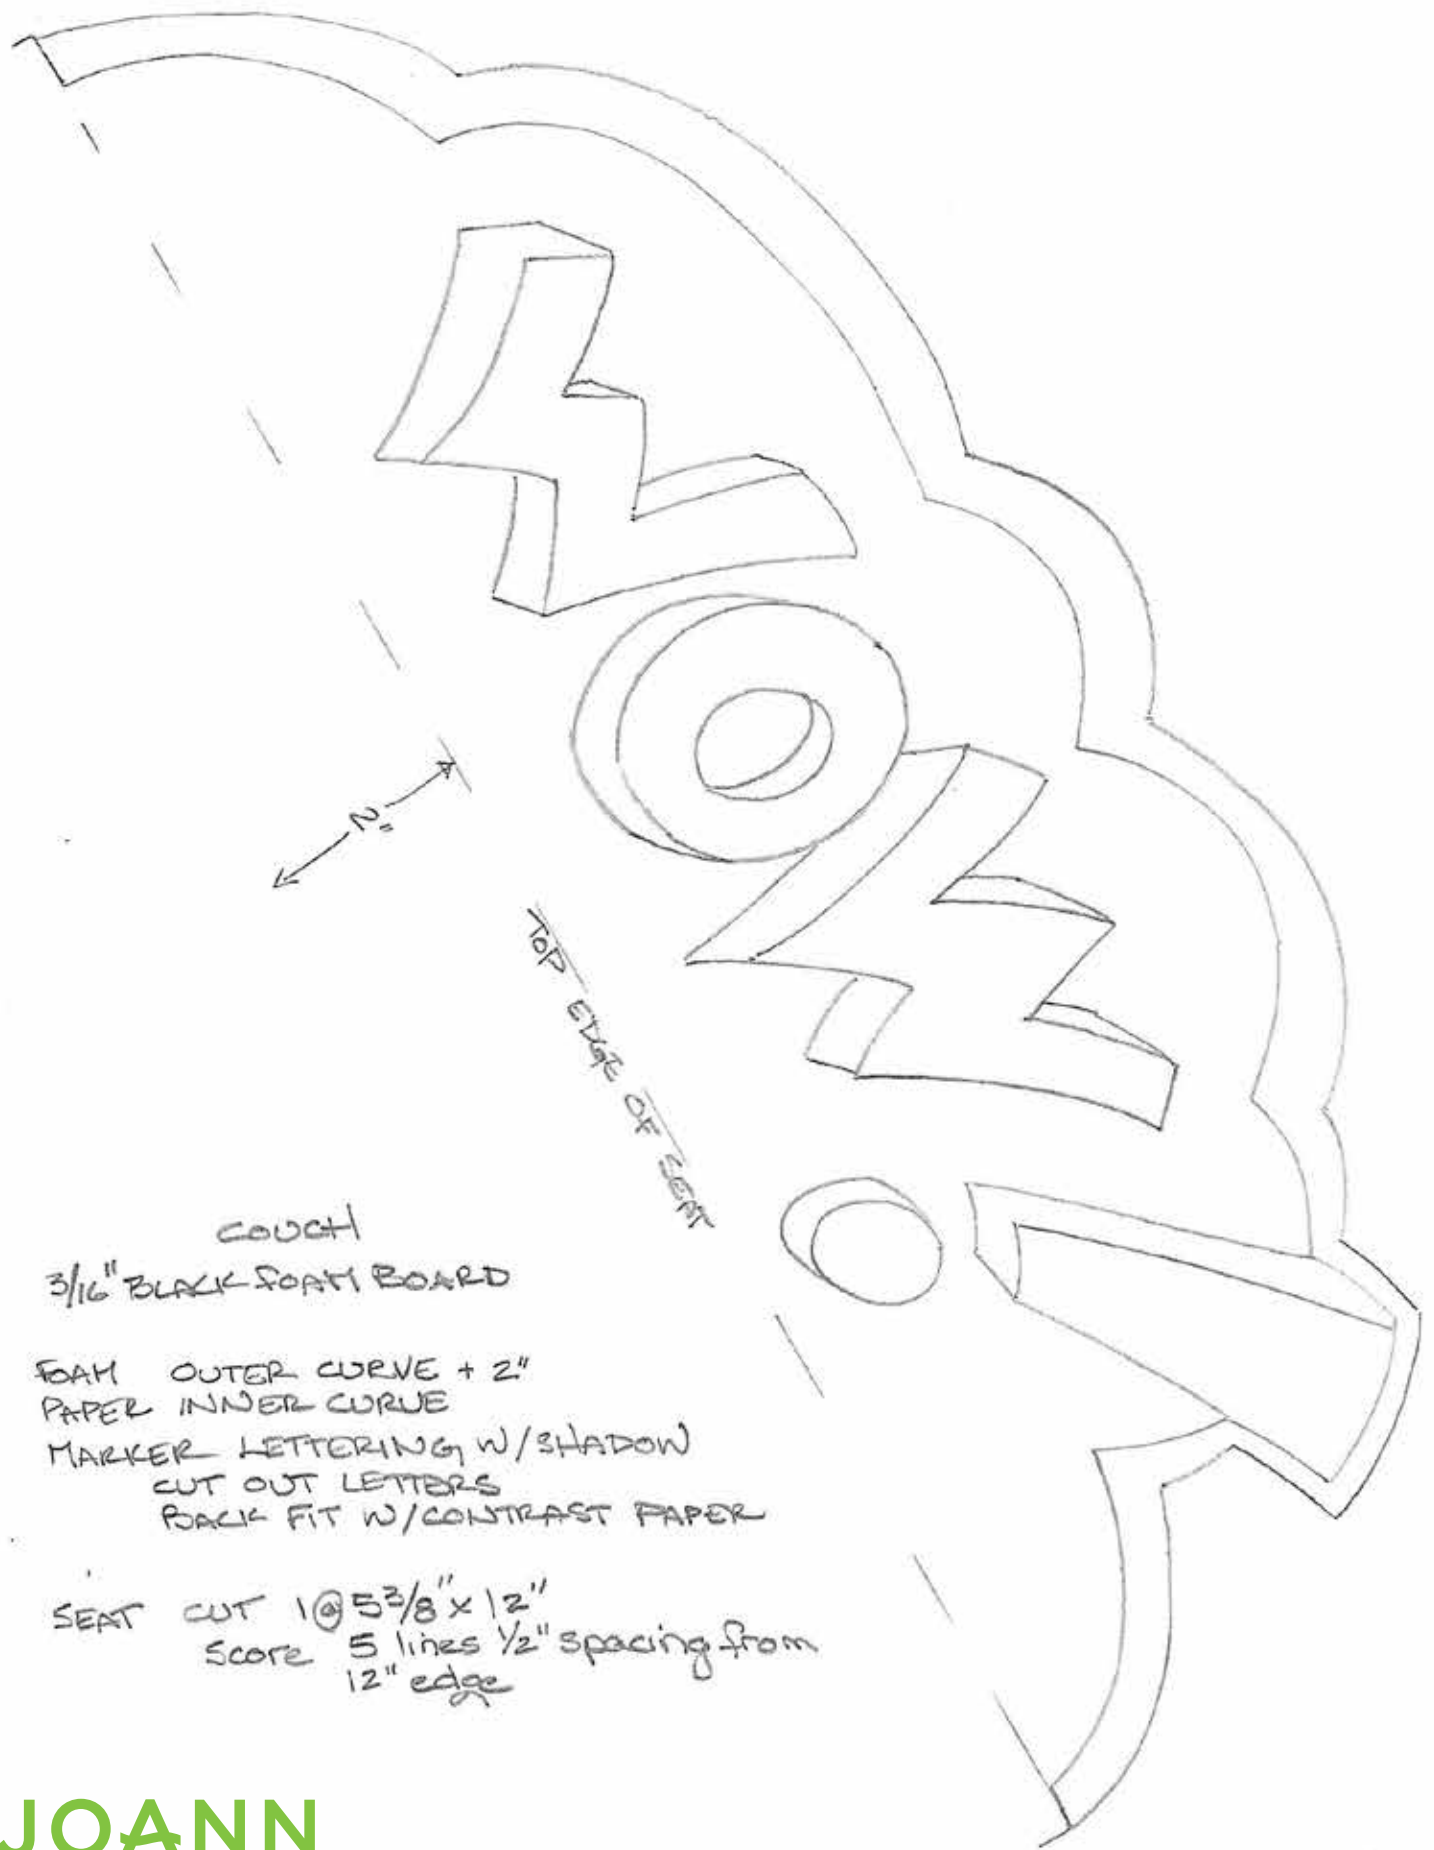 2"
TOP EDGE OF SEAT
COUCH
3/16" BLACK FOAM BOARD
FOAM OUTER CURVE + 2"
PAPER INNER CURVE
MARKER LETTERING W/SHADOW
CUT OUT LETTERS
BACK FIT W/CONTRAST PAPER
SEAT CUT 1@ 5 3/8" x 12"
Score 5 lines 1/2" spacing from
12" edge
JOANN